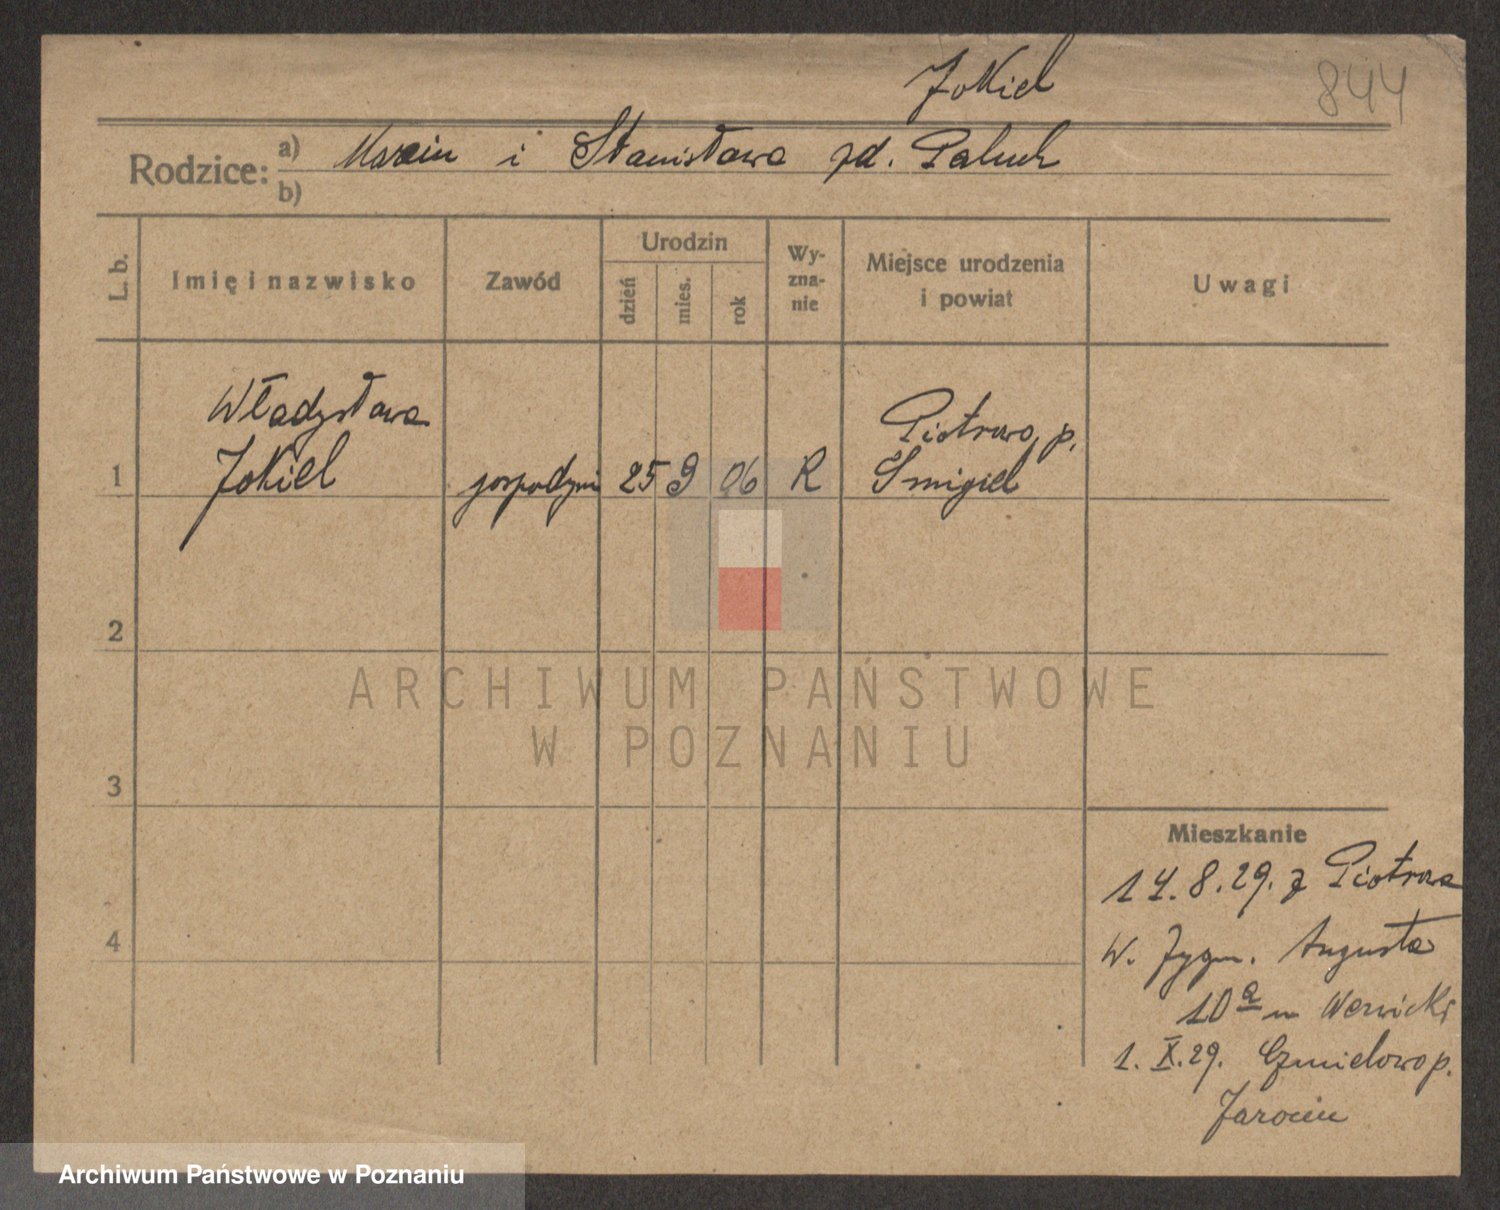 Jokiel
844
Rodzice:
a) Marcin i Stanisława zd. Paluch
b)
L. b.
Imię i nazwisko
Zawód
Urodzin
dzień
mies.
rok
Wy-
zna-
nie
Miejsce urodzenia
i powiat
Uwagi
Władysława
Jokiel
1
gospodyni
25
9
06
R
Piotrowo, p.
Smigiel
2
3
4
Mieszkanie
14.8.29. z Piotrowa
W. Zygm. Augusta
10a m
1.X.29. p.
Jarocin
ARCHIWUM PAŃSTWOWE
W POZNANIU
Archiwum Państwowe w Poznaniu